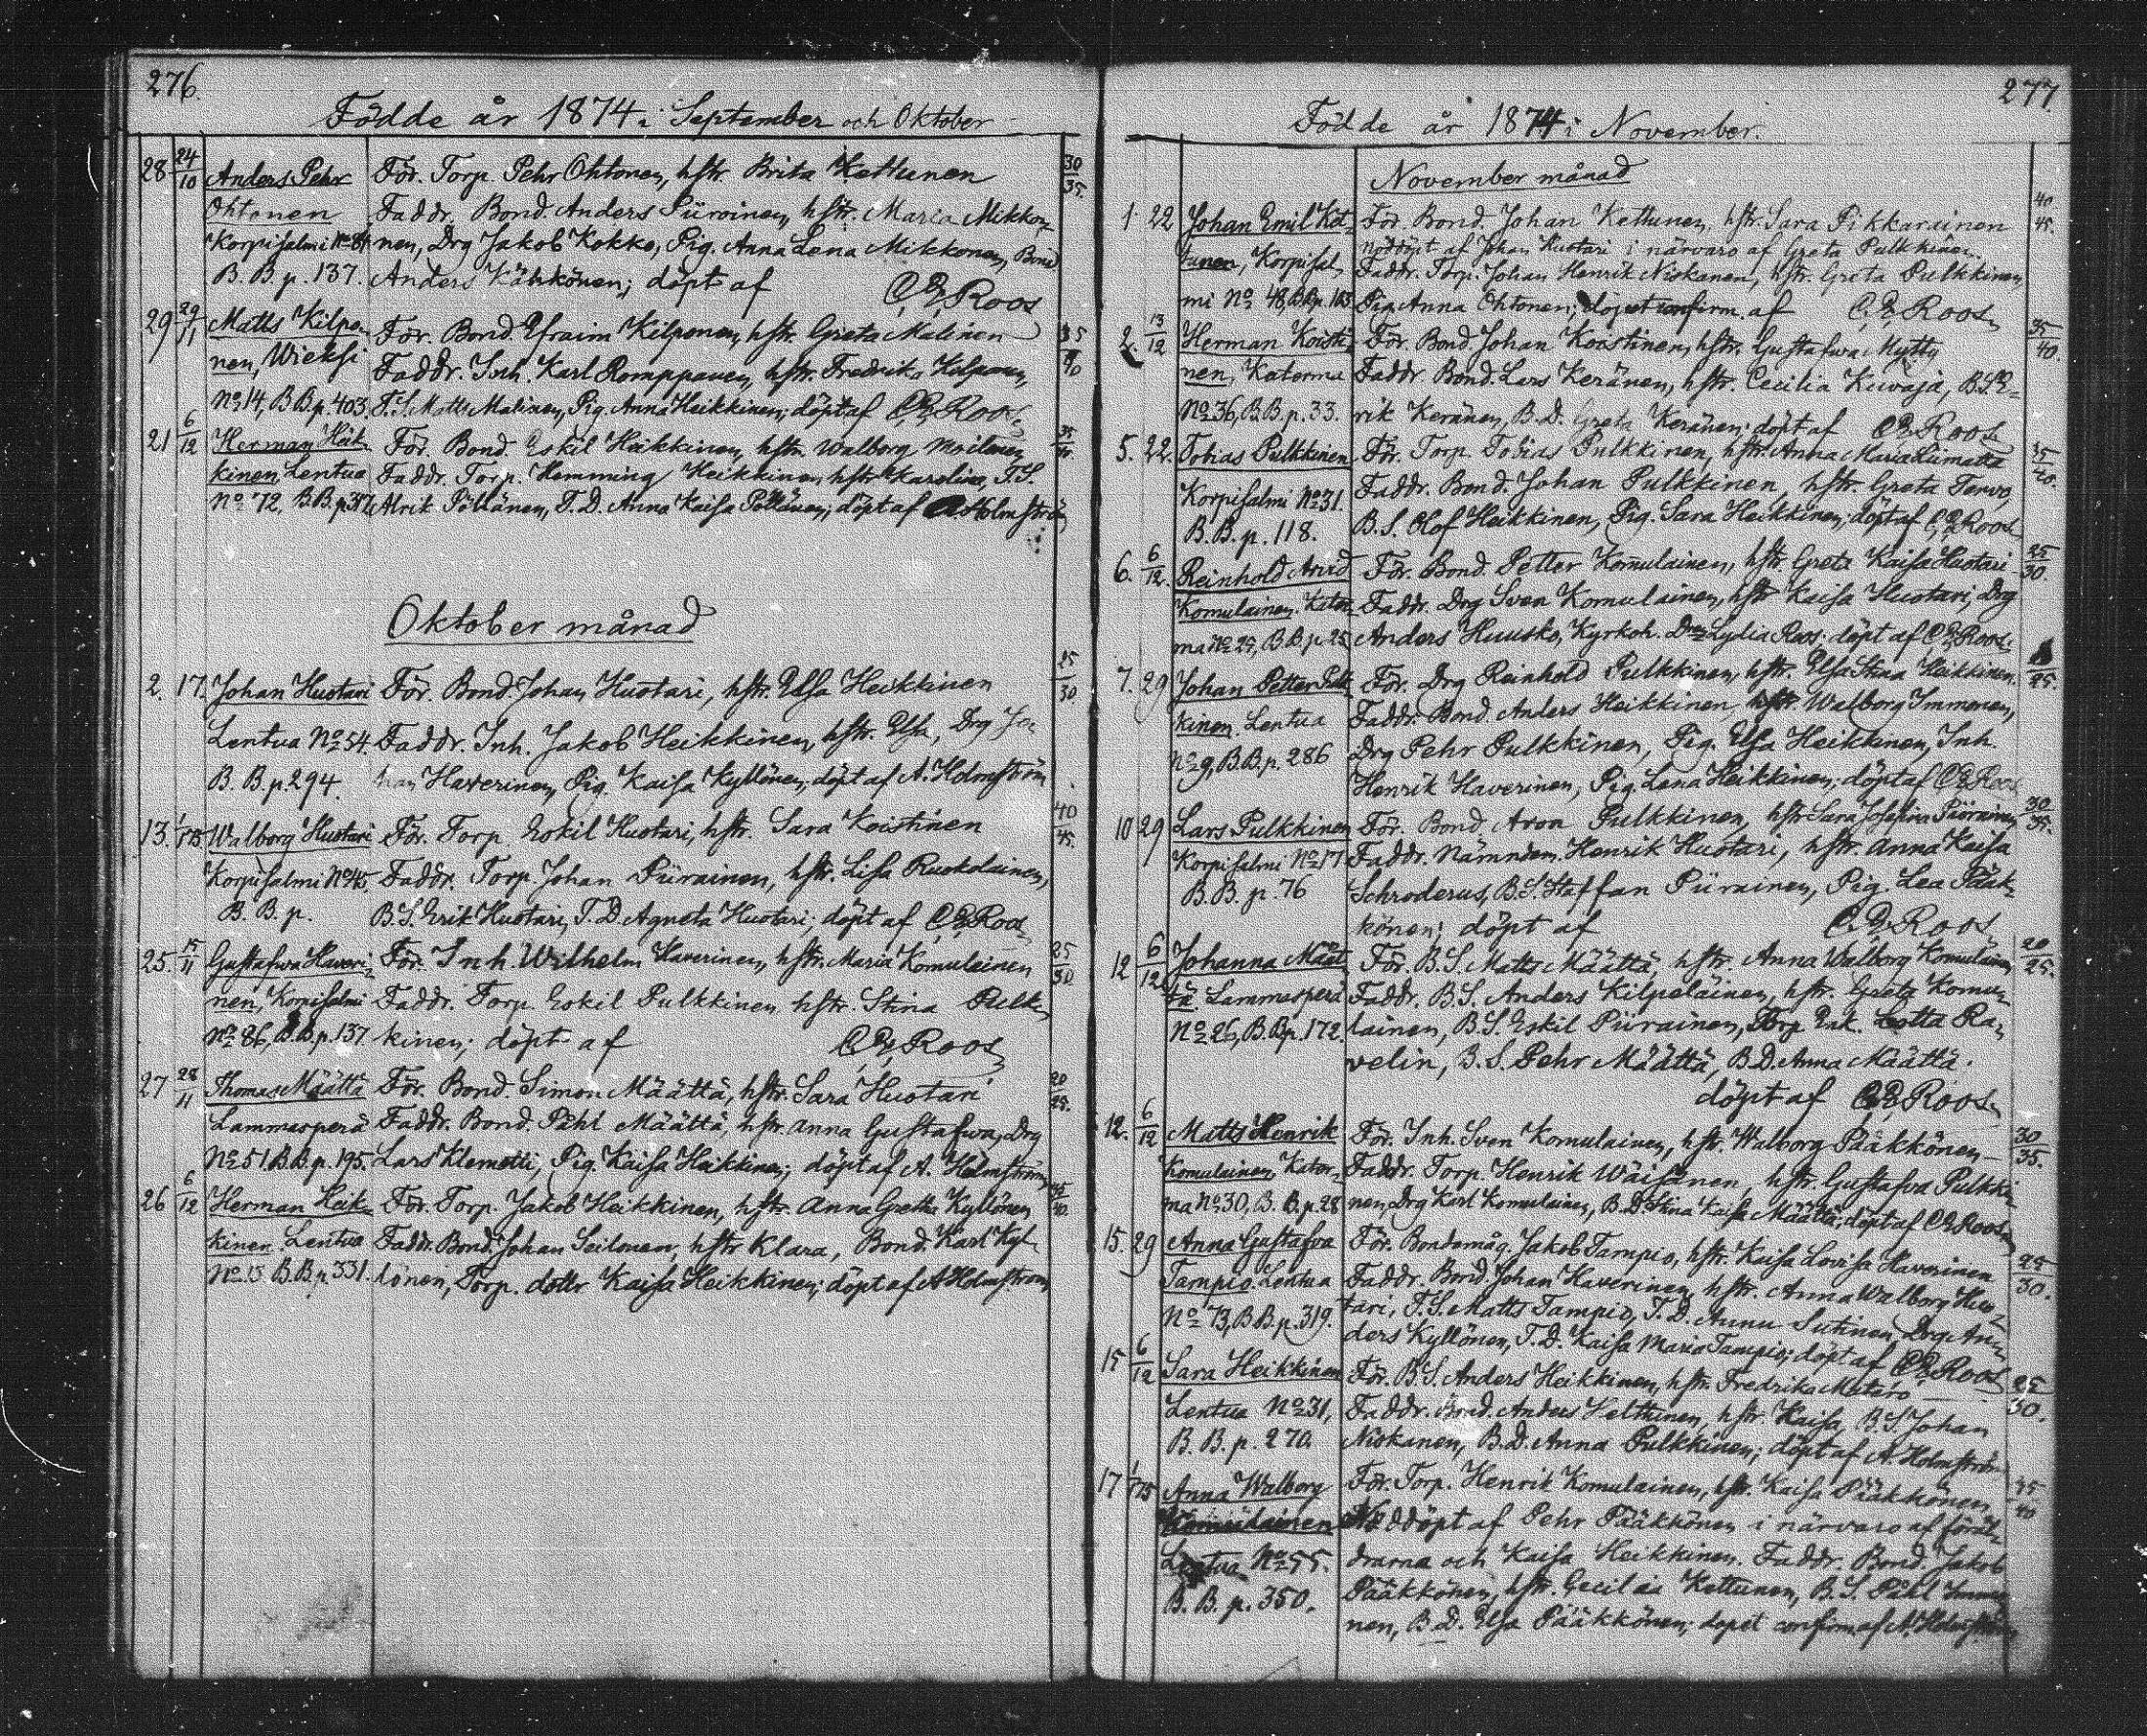 276.
Födde år 1874 i September och Oktober
28 24/10 Anders Pehr För. Torp. Pehr Ohtonen, hstr. Brita Kettunen 30/35.
Ohtonen Faddr. Bond. Anders Piiroinen, hstr. Maria Mikko-
Korpisalmi No 84 nen, Drg Jakob Kokko, Pig. Anna Lena Mikkonen, Bond
B. B. p. 137. Anders Kähkönen; döpt af Roos
29 29/11 Matts Kilpo- För. Bond. Efraim Kilponen, hstr. Greta Malinen 35/40
nen, Wieksi Faddr. Inh. Karl Romppanen, hstr. Fredrika Kilponen,
No 14, B B. p. 403. T. S. Matts Malinen, Pig. Anna Heikkinen; döpt af Roos
21 6/12 Herman Heik- För. Bond. Eskil Heikkinen, hstr. Walborg Moilanen
kinen Lentua Faddr. Torp. Hemming Heikkinen, hstr Karolina, T. S.
No 72, B.B. p. 317 Alrik Pöllänen, T. D. Anna Kaisa Pöllänen; döpt af A. Holmström
Oktober månad
2. 17. Johan Huotari För. Bond. Johan Huotari, hstr. Elsa Heikkinen 25/30
Lentua No 54. Faddr. Inh. Jakob Heikkinen, hstr. Elsa, Drg Jo-
B. B. p. 294. han Haverinen, Pig. Kaisa Kyllönen; döpt af A. Holmström
13. 1/1 75 Walborg Huotari För. Torp. Eskil Huotari, hstr. Sara Koistinen 40/45.
Korpisalmi No 45. Faddr. Torp Johan Piirainen, hstr. Lisa Ruokolainen,
B. B. p. B. S. Erik Huotari, T. D. Agneta Huotari; döpt af Roos
25. 15/11 Gustafwa Haveri- För. Inh. Wilhelm Haverinen, hstr. Maria Komulainen 25/30
nen, Korpisalmi Faddr. Torp. Eskil Pulkkinen hstr. Stina Pulk-
No 86, B. B. p. 137 kinen; döpt af Roos
27 28/11 Thomas Määttä För. Bond. Simon Määttä, hstr. Sara Huotari 20/25.
Lammasperä Faddr. Bond. Påhl Määttä, hstr. Anna Gustafwa, Drg
No 51. B. B. p. 195. Lars Klemetti, Pig. Kaisa Heikkinen; döpt af A. Holmström
26 6/12 Herman Heik- För. Torp. Jakob Heikkinen, hstr. Anna Gretha Kyllönen
kinen. Lentua Faddr. Bond. Johan Seilonen, hstr Klara, Bond. Karl Kyl-
No 13 B. B. p. 331. lönen, Torp. dottr Kaisa Heikkinen; döpt af A Holmström
277
Födde år 1874 i November.
November månad
1. 22 Johan Emil Ket- För. Bond. Johan Kettunen, hstr. Sara Pikkarainen 40/45.
nöddöpt af Johan Huotari i närvaro af Greta Pulkkinen.
tunen, Korpisal- Faddr. Torp. Johan Henrik Niskanen, hstr. Greta Pulkkinen
mi No 48, B B. p. 103 Pig. Anna Ohtonen; döpet confirm. af Roos
2. 13/12 Herman Koisti- För. Bond. Johan Koistinen, hstr. Gustafwa Mytty 35/40.
nen, Katerma Faddr. Bond. Lars Keränen, hstr. Cecilia Kuvaja, B. S. E-
No 36, B. B. p. 33. rik Keränen, B. D. Greta Keränen; döpt af Roos
5. 22. Tobias Pulkkinen För. Torp. Tobias Pulkkinen, hstr. Anna Maria Liimatta 35/40.
Korpisalmi No 31. Faddr. Bond. Johan Pulkkinen, hstr. Greta Tervo,
B. B. p. 118. B. S. Olof Heikkinen, Pig. Sara Heikkinen; döpt af Roos
6. 6/12. Reinhold Arvid För. Bond. Petter Komulainen, hstr. Greta Kaisa Huotari 25/30.
Komulainen. Kater- Faddr. Drg Sven Komulainen, hstr Kaisa Huotari, Drg
ma No 25, B. B. p. 25 Anders Huusko, Kyrkoh. Lydia Roos; döpt af Roos
7. 29 Johan Petter Pulk- För. Drg Reinhold Pulkkinen, hstr. Elsa Stina Heikkinen.
kinen. Lentua Faddr. Bond. Anders Heikkinen, hstr. Walborg Immonen,
No 9, B. B. p. 286 Drg Pehr Pulkkinen, Pig. Elsa Heikkinen, Inh.
Henrik Haverinen, Pig. Lena Heikkinen; döpt af Roos
10 29 Lars Pulkkinen För. Bond. Aron Pulkkinen, hstr Sara Josefina Piirainen 30/35.
Korpisalmi No 17 Faddr. Nämndem. Henrik Huotari, hstr. Anna Kaisa
B. B. p. 76 Schroderus, B. S. Staffan Piirainen, Pig. Lea Pääk-
könen; döpt af Roos
12 6/12 Johanna Määt- För. B. S. Matts Määttä, hstr. Anna Walborg Komulainen 20/25.
tä Lammasperä Faddr. B. S. Anders Kilpeläinen, hstr. Greta Komu-
No 26, B. B. p. 172. lainen, B. S. Eskil Piirainen, Torp Enk. Lotta Ra-
velin, B. S. Pehr Määttä, B. D. Anna Määttä.
döpt af Roos
12. 6/12 Matts Henrik För. Inh. Sven Komulainen, hstr. Walborg Pääkkönen 30/35.
Komulainen, Kater- Faddr. Torp. Henrik Wäisänen, hstr. Gustafva Pulkki-
ma No 30, B. B. p. 28 nen, Drg Karl Komulainen, B. D. Stina Kaisa Määttä; döpt af Roos
15. 29 Anna Gustafva För. Bondemåg. Jakob Tampio, hstr. Kaisa Lovisa Haverinen 25/30.
Tampio. Lentua Faddr. Bond. Johan Haverinen, hstr. Anna Walborg Huo-
No 73, B B. p. 319. tari, T. S. Matts Tampio, T. D. Anna Sutinen, Drg An-
ders Kyllönen, T. D. Kaisa Maria Tampio; döpt af Roos
15 6/12 Sara Heikkinen För. B. S. Anders Heikkinen, hstr. Fredrika Matero 25/30.
Lentua No 31, Faddr. Bond. Anders Kettunen, hstr. Kaisa, B. S. Johan
B. B. p. 270. Niskanen, B. D. Anna Pulkkinen; döpt af A. Holmström
17 1/1 75 Anna Walborg För. Torp. Henrik Komulainen, hstr. Kaisa Pääkkönen 35/40
Komulainen Nöddöpt af Pehr Pääkkönen i närvaro af föräl-
Lentua No 55. drarna och Kaisa Heikkinen. Faddr. Bond. Jakob
B. B. p. 350. Pääkkönen, hstr. Cecilia Kettunen, B. S. Påhl Immo-
nen, B. D. Elsa Pääkkönen; döpet confirm. af A. Holmström